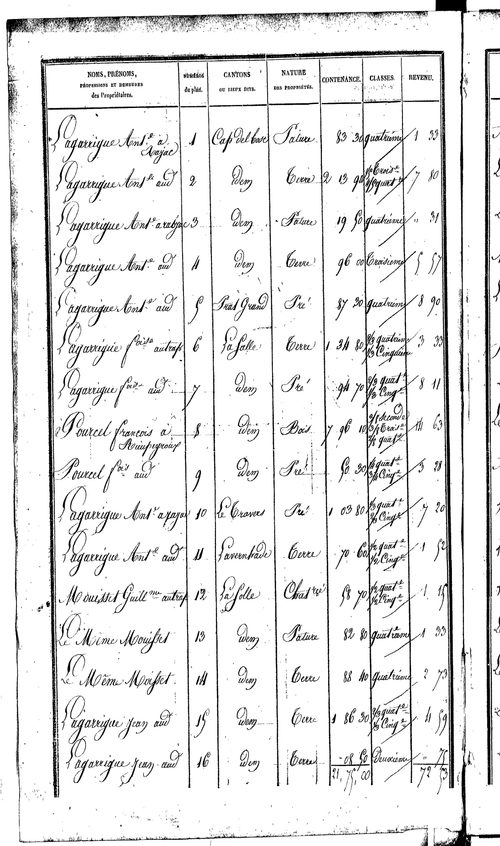 NOMS, PRÉNOMS, PROFESSIONS ET DEMEURES des Propriétaires. | NUMÉROS du plan. | CANTONS OU LIEUX DITS. | NATURE DES PROPRIÉTÉS. | CONTENANCE. | CLASSES. | REVENU.
Lagarrigue Ant.e à 1 Cap del bosc Pature 83 30 quatrième 1 33
Lagarrigue Ant.e aud 2 idem Terre 2 13 90 7 80
Lagarrigue Ant.e 3 idem Pature 19 50 quatrième " 31
Lagarrigue Ant.e aud 4 idem Terre 96 00 Troisième 5 57
Lagarrigue Ant.e aud 5 Prat Grand Pré 87 30 quatrième 8 90
Lagarrigue fois 6 La Salle Terre 1 34 80 2/3 quatrième 1/3 Cinquième 3 33
Lagarrigue fois aud 7 idem Pré 94 70 quat.e Cinq.e 8 11
Pourcel françois à Rieupeyroux 8 idem Bois 7 96 10 14 63
Pourcel fois aud 9 idem Pré 50 30 quat.e Cinq.e 3 28
Lagarrigue Ant.e 10 Le Travers Pré 1 03 80 quat.e Cinq.e 7 20
Lagarrigue Ant.e aud 11 Terre 70 60 1/2 quat.e 1/2 Cinq.e 1 52
Mouisset Guill.me 12 La Solle 58 70 1/2 quat.e 1/2 Cinq.e 1 15
Le Même Mouisset 13 idem Pature 82 80 quatrième 1 33
Le Même Mouisset 14 idem Terre 88 40 quatrième 2 73
Lagarrigue Jean aud 15 idem Terre 1 86 30 quat.e Cinq.e 4 59
Lagarrigue Jean aud 16 idem Terre 08 50 Deuxième " 75
21, 75, 00 72 53